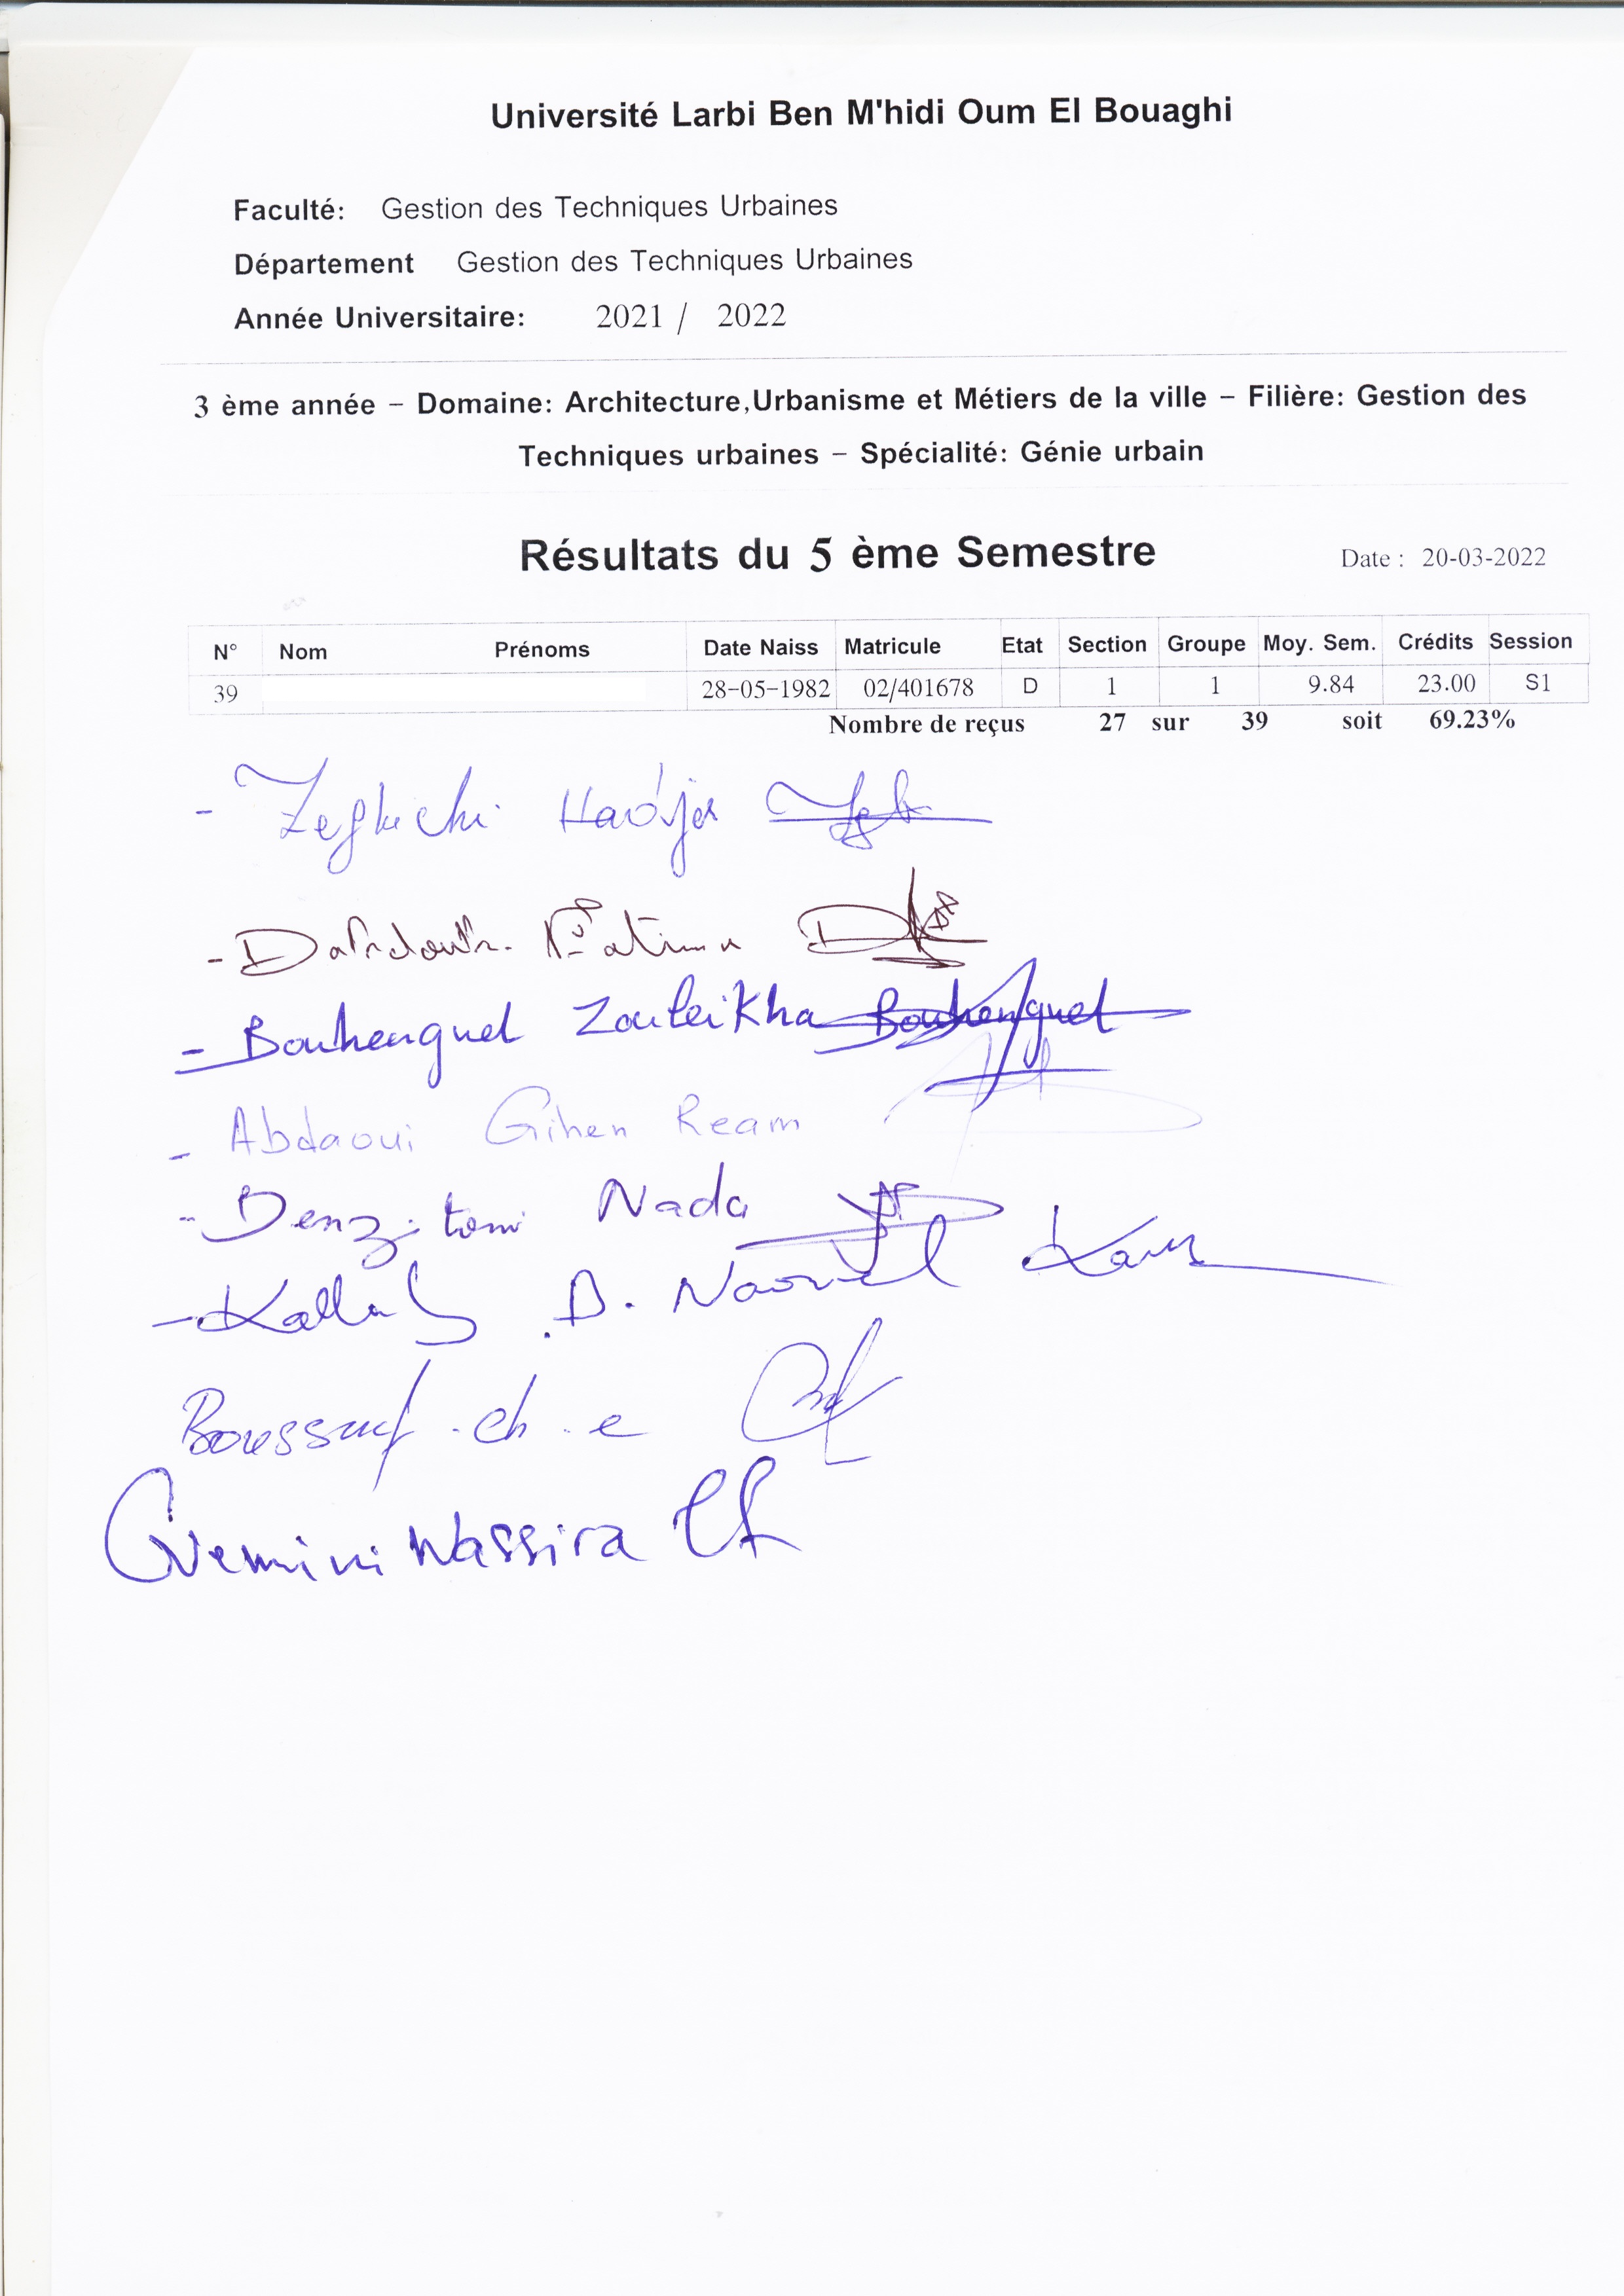 Université Larbi Ben M'hidi Oum El Bouaghi
Faculté: Gestion des Techniques Urbaines
Département Gestion des Techniques Urbaines
Année Universitaire: 2021 / 2022
3 ème année – Domaine: Architecture,Urbanisme et Métiers de la ville – Filière: Gestion des
Techniques urbaines – Spécialité: Génie urbain
Résultats du 5 ème Semestre Date : 20-03-2022
N° Nom Prénoms Date Naiss Matricule Etat Section Groupe Moy. Sem. Crédits Session
39 28-05-1982 02/401678 D 1 1 9.84 23.00 S1
Nombre de reçus 27 sur 39 soit 69.23%
- Zeghichi Hadjer
- Fatima
- Bouhenguel Zouleikha Bouhenguel
- Abdaoui Gihen Ream
- Nada
- Kallal .D. Naouel
Boussouf . ch . e
Guemini Wassira